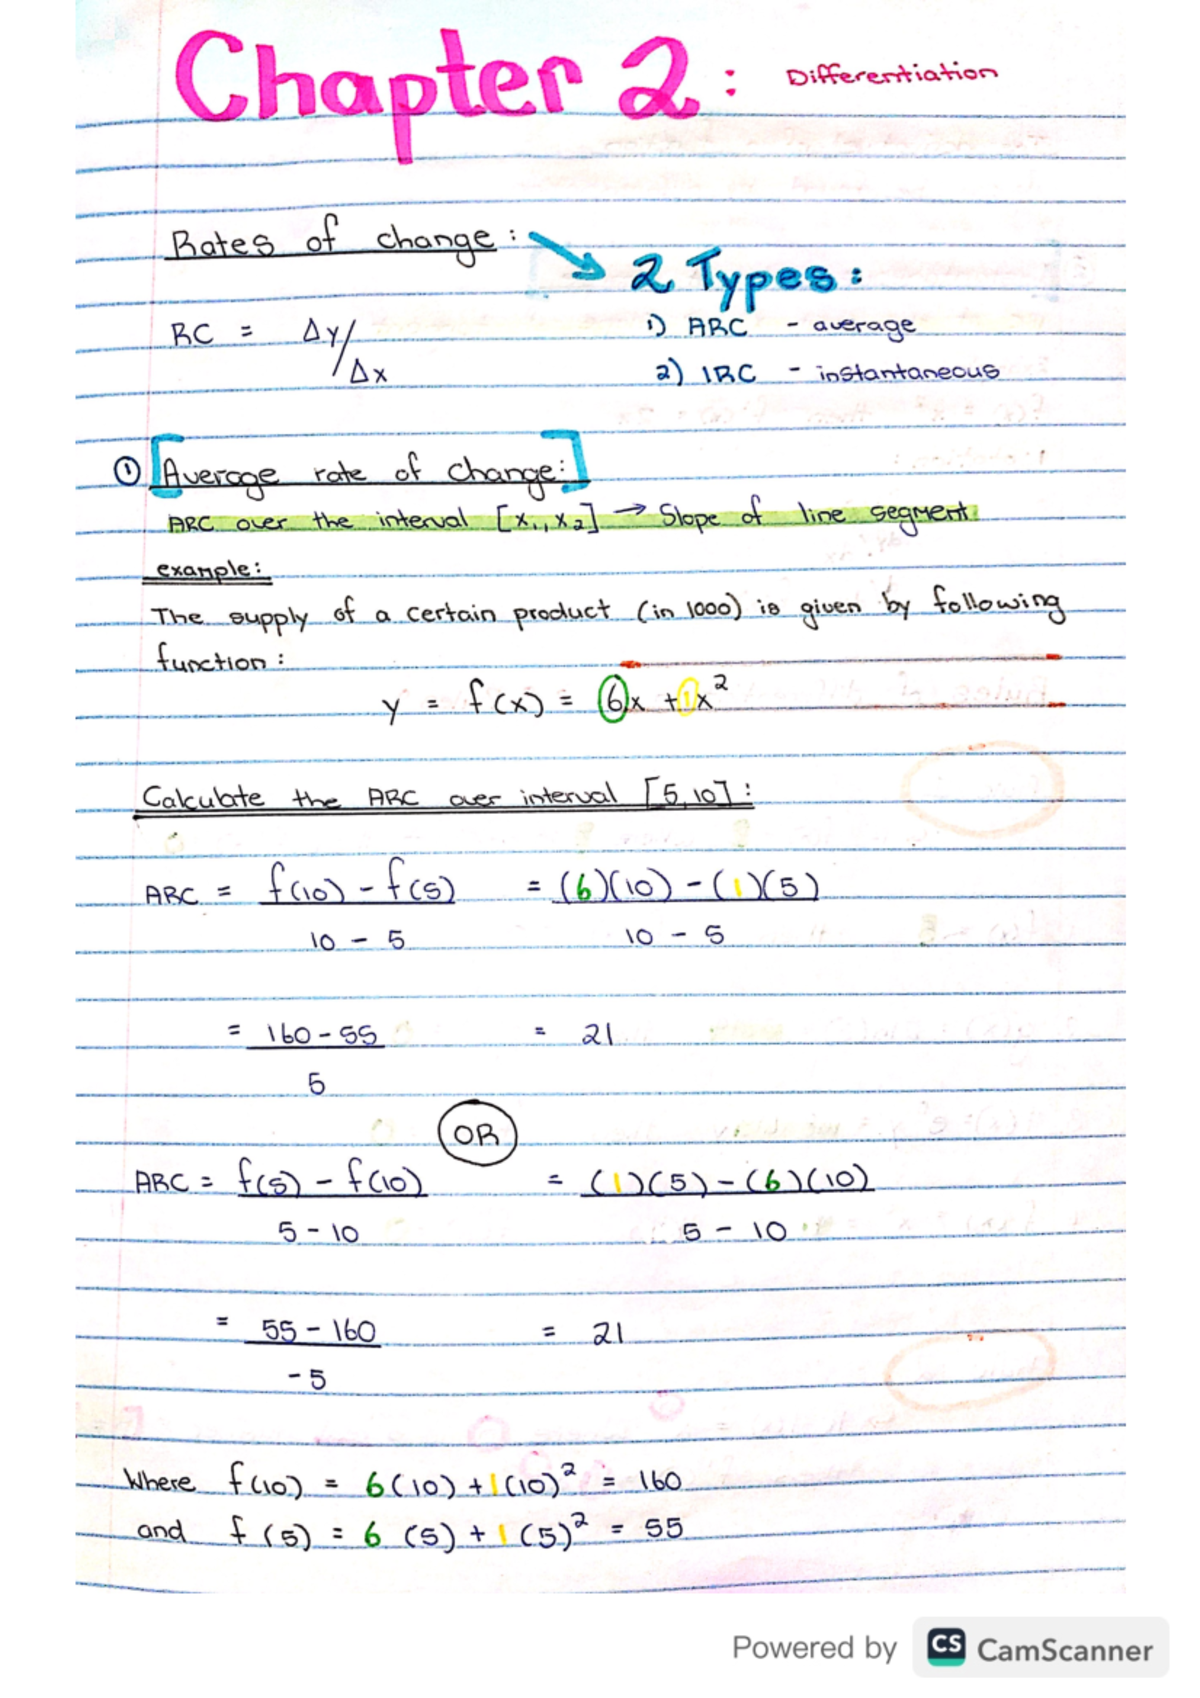 Chapter 2: Differentiation
Rates of change:
2 Types:
RC = Δy/Δx
1) ARC - average
2) IRC - instantaneous
① [Average rate of change:]
ARC over the interval [x₁, x₂] → Slope of line segment
example:
The supply of a certain product (in 1000) is given by following
function:
y = f(x) = 6x + 1x²
Calculate the ARC over interval [5,10]:
ARC = f(10) - f(5) = (6)(10) - (1)(5)
10 - 5 10 - 5
= 160 - 55 = 21
5
OR
ARC = f(5) - f(10) = (1)(5) - (6)(10)
5 - 10 5 - 10
= 55 - 160 = 21
- 5
Where f(10) = 6(10) + 1(10)² = 160
and f(5) = 6(5) + 1(5)² = 55
Powered by CS CamScanner